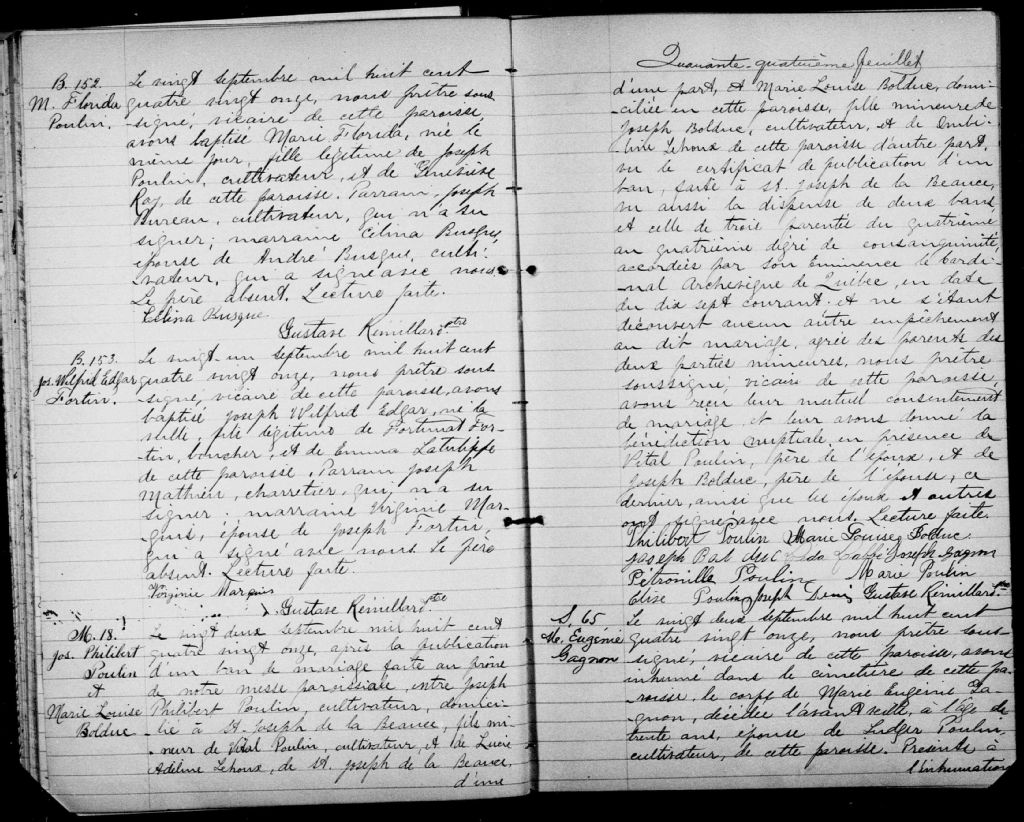 B. 152.
M. Florida
Poulin.
Le vingt septembre mil huit cent
quatre vingt onze, nous prêtre sous
signé, vicaire de cette paroisse,
avons baptisé Marie Florida, née le
même jour, fille légitime de Joseph
Poulin, cultivateur, et de Geneviève
Roy, de cette paroisse. Parrain, Joseph
Bureau, cultivateur, qui n'a su
signer; marraine Célina Busque,
épouse de André Busque, culti-
vateur, qui a signé avec nous.
Le père absent. Lecture faite.
Célina Busque.
Gustave Rémillard ptre
B. 153.
Jos. Wilfrid Edgar
Fortin.
Le vingt un septembre mil huit cent
quatre vingt onze, nous prêtre sous
signé, vicaire de cette paroisse, avons
baptisé Joseph Wilfrid Edgar, né la
veille, fils légitime de Fortunat For-
tin, boucher, et de Emma Latulippe
de cette paroisse. Parrain Joseph
Mathieu, charretier, qui n'a su
signer. marraine Virginie Mar-
quis, épouse de Joseph Fortin,
qui a signé avec nous. Le père
absent. Lecture faite.
Virginie Marquis
Gustave Rémillard ptre
M. 18.
Jos. Philibert
Poulin
et
Marie Louise
Bolduc
Le vingt deux septembre mil huit cent
quatre vingt onze, après la publication
d'un ban de mariage faite au prône
de notre messe paroissiale, entre Joseph
Philibert Poulin, cultivateur, domici-
lié à St. Joseph de la Beauce, fils mi-
neur de Vital Poulin, cultivateur, et de Lucie
Adeline Lehoux, de St. Joseph de la Beauce,
d'une
Quarante-quatrième feuillet
d'une part, et Marie Louise Bolduc, domi-
ciliée en cette paroisse, fille mineure de
Joseph Bolduc, cultivateur, et de Ombé-
line Lehoux de cette paroisse d'autre part,
vu le certificat de publication d'un
ban, faite à St. Joseph de la Beauce,
vu aussi la dispense de deux bans
et celle de trois parentés du quatrième
au quatrième dégré de consanguinité,
accordées par son Eminence le Cardi-
nal Archevêque de Québec, en date
du dix sept courant. et ne s'étant
découvert aucun autre empêchement
au dit mariage, agrée des parents des
deux parties mineures, nous prêtre
soussigné, vicaire de cette paroisse,
avons reçu leur mutuel consentement
de mariage, et leur avons donné la
bénédiction nuptiale, en présence de
Vital Poulin, père de l'époux, et de
Joseph Bolduc, père de l'épouse, ce
dernier, ainsi que les époux et autres
ont signé avec nous. Lecture faite.
Philibert Poulin Marie Louise Bolduc
Joseph Bolduc Joseph Gagnon
Pétronille Poulin Marie Poulin
Elise Poulin Joseph Gustave Rémillard ptre
S. 65
M. Eugénie
Gagnon
Le vingt deux septembre mil huit cent
quatre vingt onze, nous prêtre sous-
signé, vicaire de cette paroisse, avons
inhumé dans le cimetière de cette pa-
roisse, le corps de Marie Eugénie Ga-
gnon, décédée l'avant veille, à l'âge de
trente ans, épouse de Lidger Poulin,
cultivateur, de cette paroisse. Présents à
l'inhumation